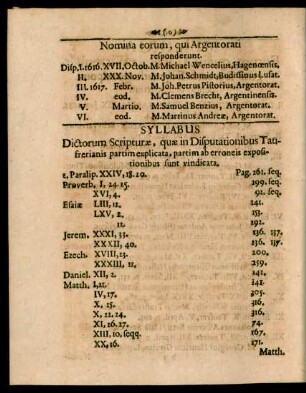 )o(
Nomina eorum, qui Argentorati
responderunt.
Disp. I. 1616. XVII, Octob. M. Michael Wencelius, Hagenoensis.
II. XXX. Nov. M. Johan. Schmidt, Budissinus Lusat.
III. 1617. Febr. M. Joh. Petrus Pistorius, Argentorat.
IV. eod. M. Clemens Brecht, Argentinensis.
V. Martio. M. Samuel Benzius, Argentorat.
VI. eod. M. Martinus Andreæ, Argentorat.
SYLLABUS
Dictorum Scripturæ, quæ in Disputationibus Tau-
frerianis partim explicata, partim ab erroneis exposi-
tionibus sunt vindicata.
2. Paralip. XXIV, 18. 20. Pag. 261. seq.
Proverb. I, 24. 25. 199. seq.
XVI, 4. 91. seq.
Esaiæ LIII, 12. 141.
LXV, 2. 153.
12. 192.
Jerem. XXXI, 33. 136. 137.
XXXII, 40. 136. 137.
Ezech. XVIII, 23. 200.
XXXIII, 11. 259.
Daniel. XII, 2. 141.
Matth. I, 21. 142.
IV, 17. 205.
X, 15. 316.
X, 22. 24. 316.
XI, 26. 27. 74.
XIII, 10. seqq. 167.
XX, 16. 171.
Matth.